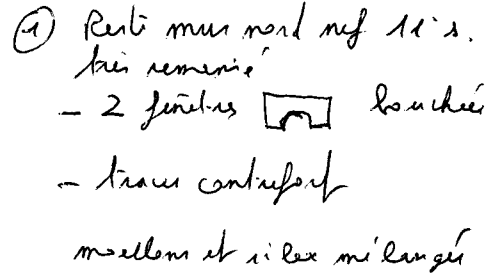 ① Reste mur nord nef 11e s.
très remanié
- 2 fenêtres bouchées
- traces contrefort
moellons et silex mélangés